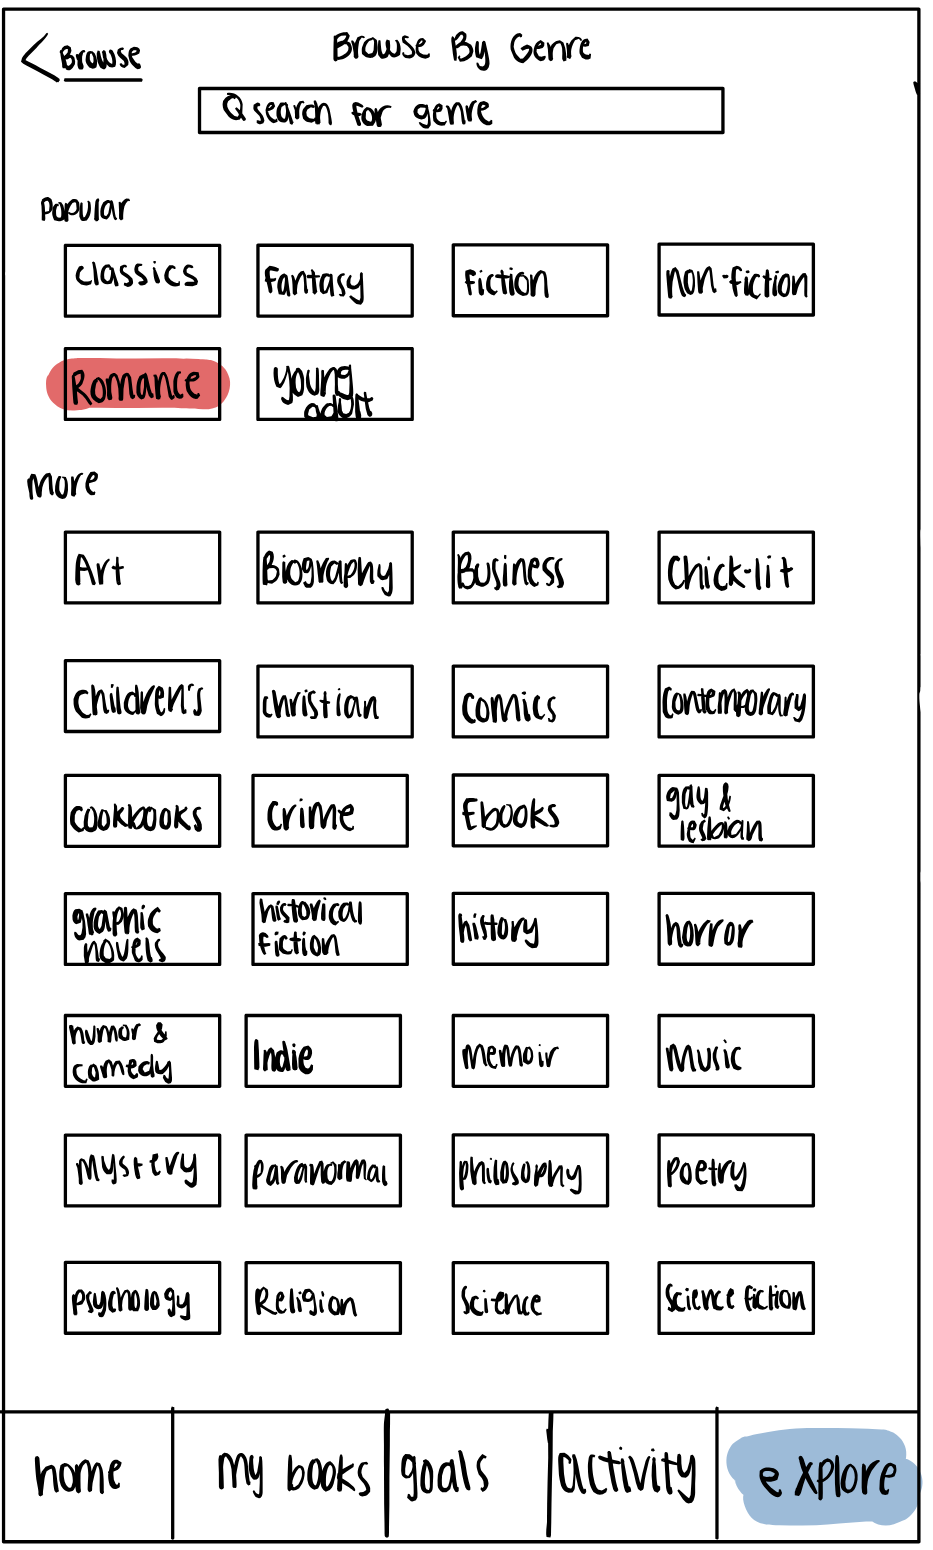 < Browse
Browse By Genre
search for genre
Popular
classics
Fantasy
Fiction
non-fiction
Romance
young
adult
more
Art
Biography
Business
Chick-lit
children's
christian
comics
contemporary
cookbooks
crime
Ebooks
gay &
lesbian
graphic
novels
historical
fiction
history
horror
humor &
comedy
Indie
memoir
music
mystery
paranormal
philosophy
poetry
psychology
Religion
Science
Science fiction
home
my books
goals
activity
eXplore